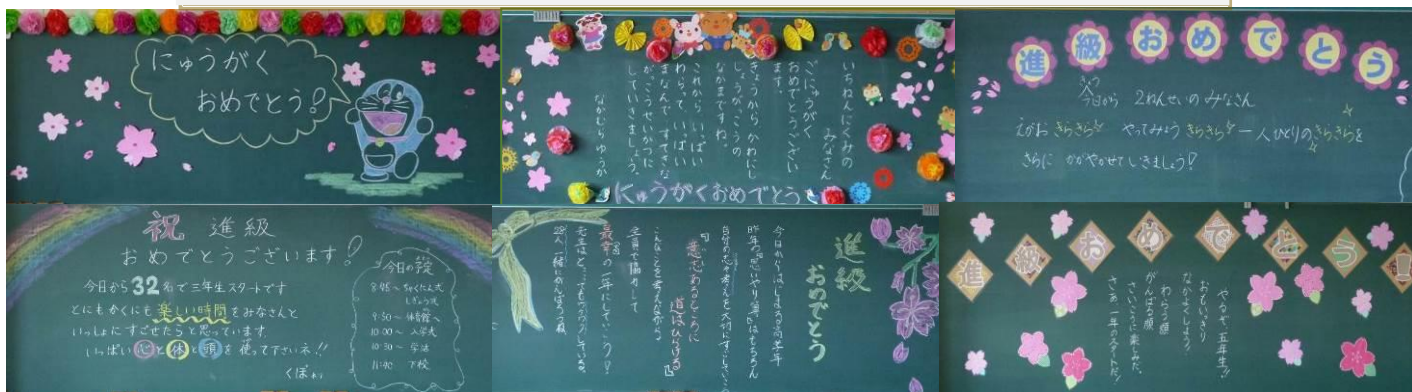 にゅうがく
おめでとう!
いちねんにくみの
みなさん
ごにゅうがく
おめでとうござい
ます。
きょうから かわにし
しょうがっこうの
なかまですね。
これから、いっぱい
わらって、いっぱい
まなんで、すてきな
がっこうせいかつに
していきましょう。
ながむらゆうか
にゅうがくおめでとう
進級おめでとう
今日から 2ねんせいのみなさん
えがお きらきら やってみよう きらきら 一人ひとりのきらきらを
さらに かがやかせていきましょう!
祝 進級
おめでとうございます!
今日から32名で三年生スタートです
とにもかくにも楽しい時間をみなさんと
いっしょにすごせたらと思っています
いっぱい心と体と頭を使って下さいネ!!
今日の予定
8:45~ ちゃくにん式
しぎょう式
9:50~ 体育館へ
10:00~ 入学式
10:30~ 学活
11:40 下校
進級
おめでとう
今日からはじまる高学年
意志あるところに
道はひらける
こんなことを考えながら
全員で協力して
最幸の一年にしていこう!
28人で一緒にがんばろうね
進級おめでとう!
やるぞ、五年生!
おもいっきり
なかよくしよう!
わらう顔
がんばる顔
さいこうに楽しみだ。
さあ一年のスタートだ!